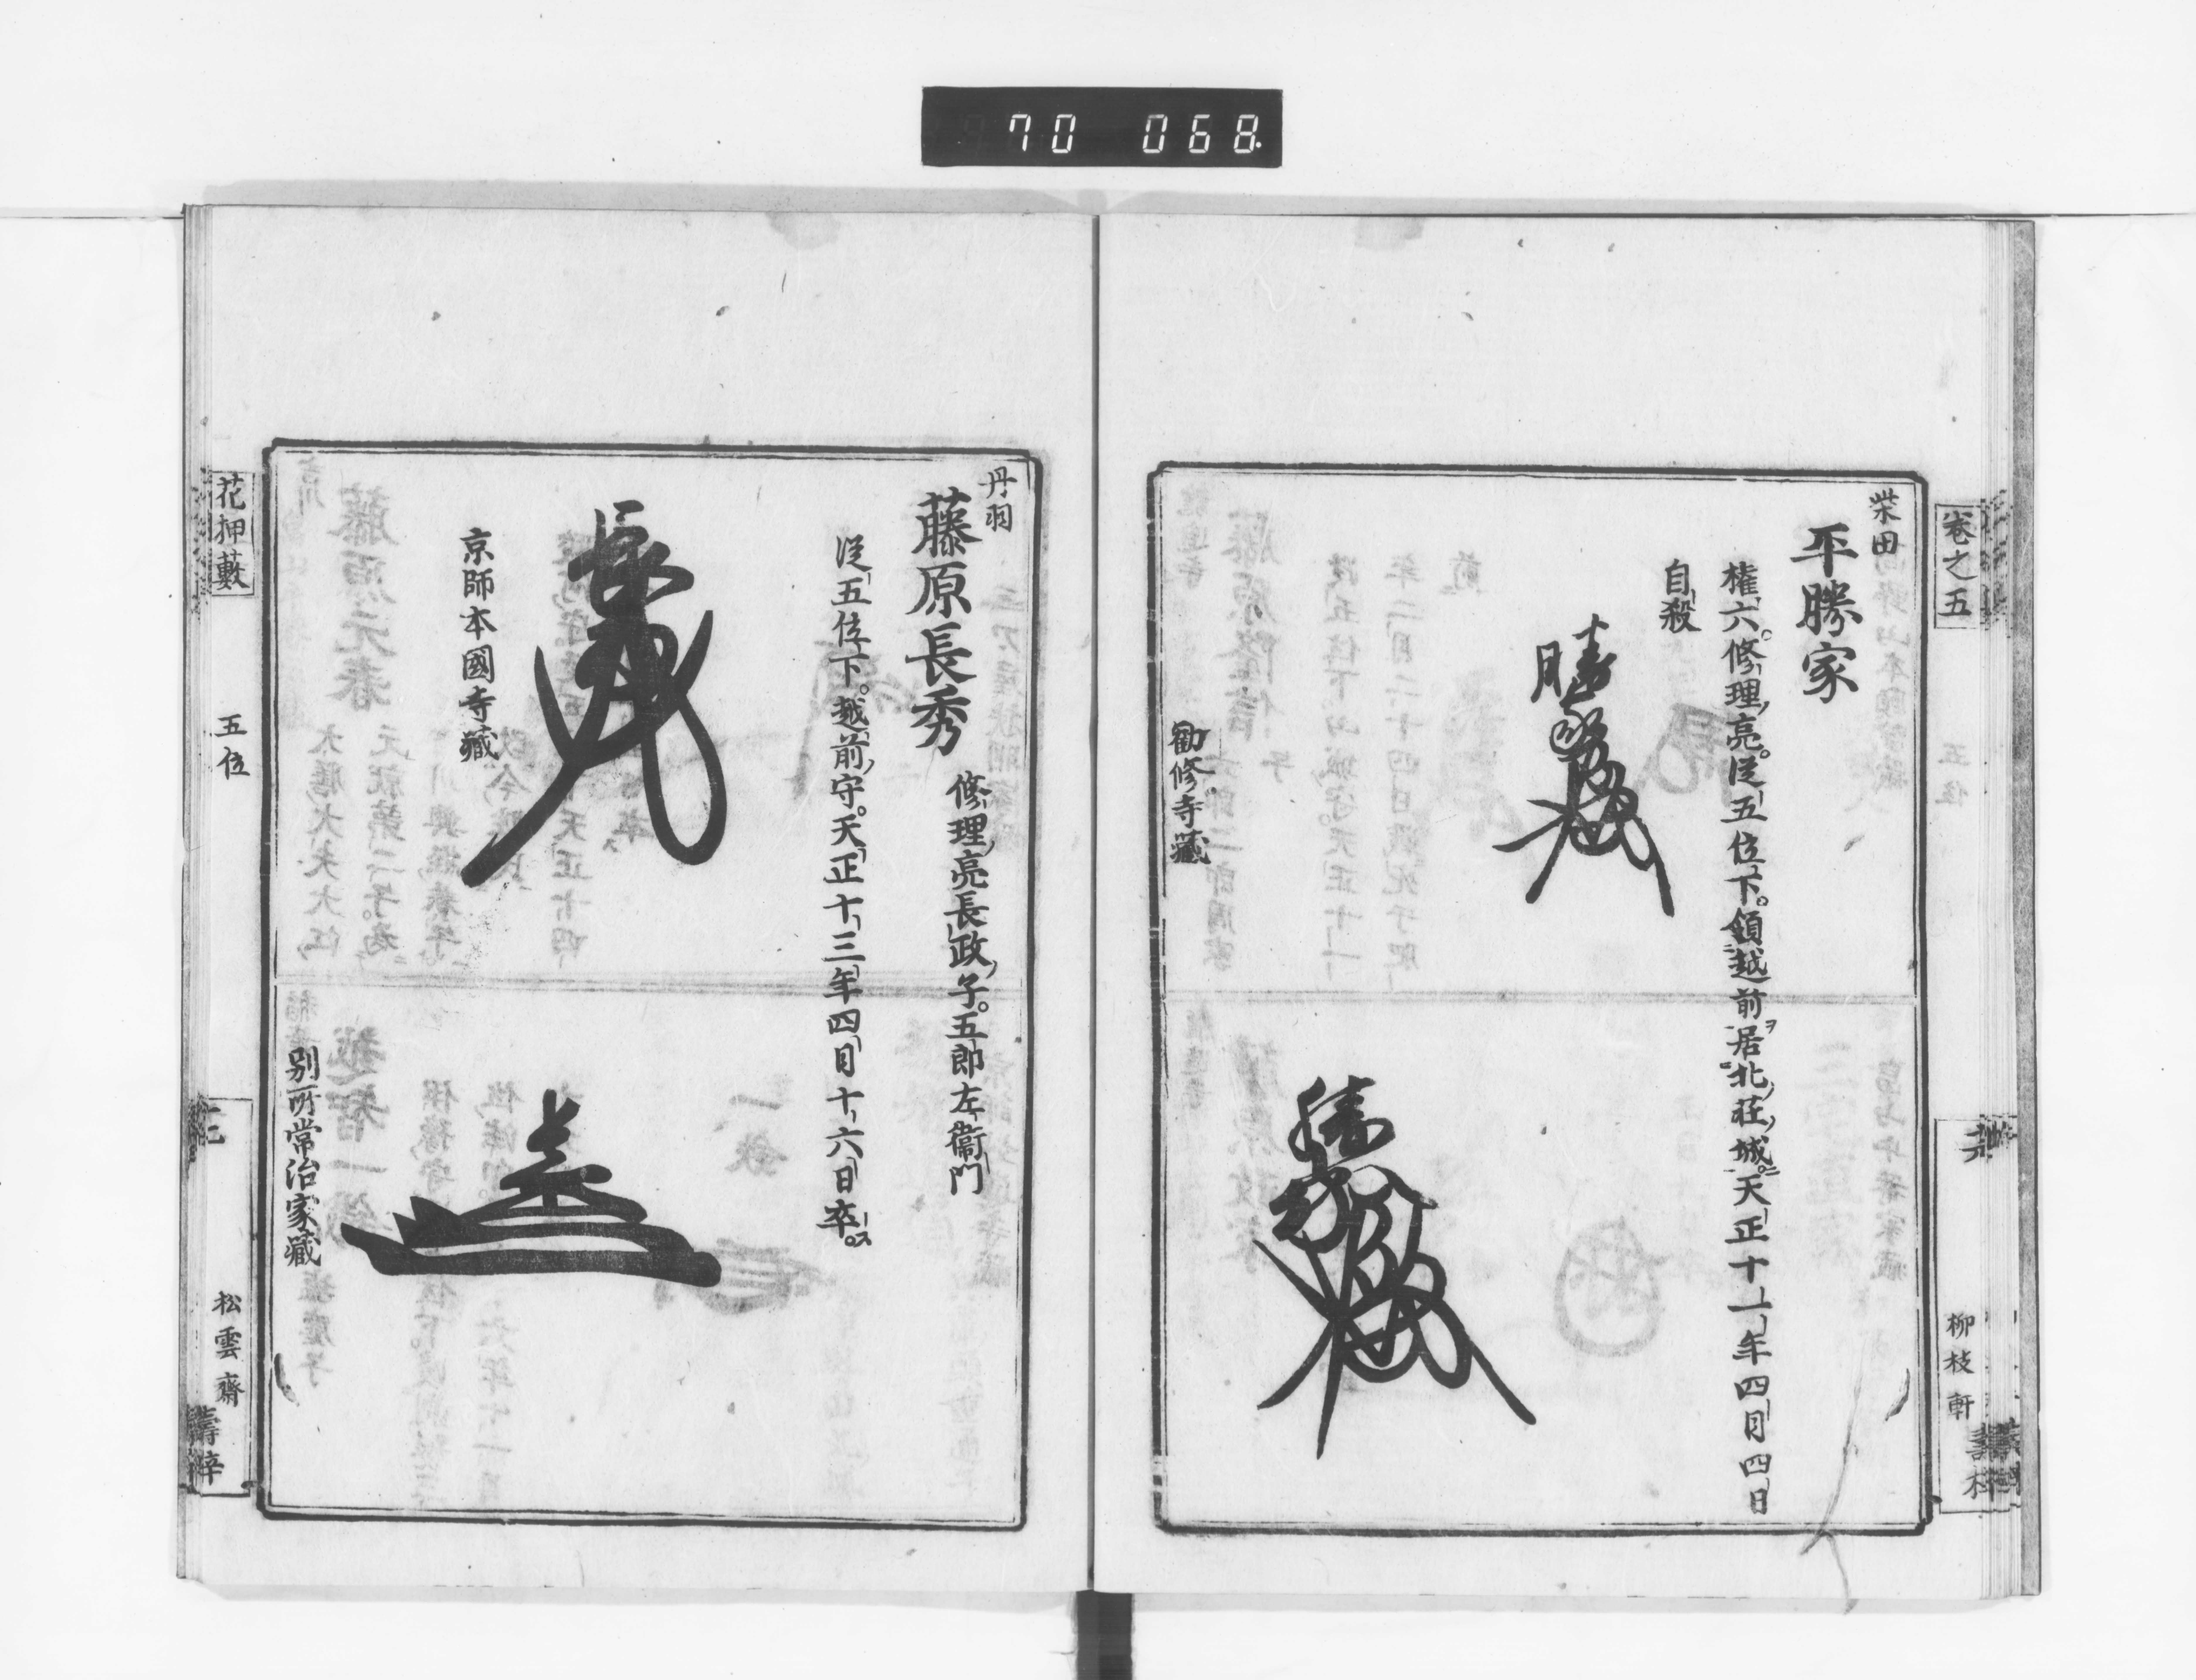 70 068.
卷之五
五位
柳枝軒
柴田
平勝家
權六。修理亮。從五位下。領越前居北莊城。天正十一年四月四日
自殺
勸修寺藏
丹羽
藤原長秀
修理亮長政子。五郎左衞門
從五位下。越前守。天正十三年四月十六日卒。
京師本國寺藏
別所常治家藏
花押藪
五位
松雲齋